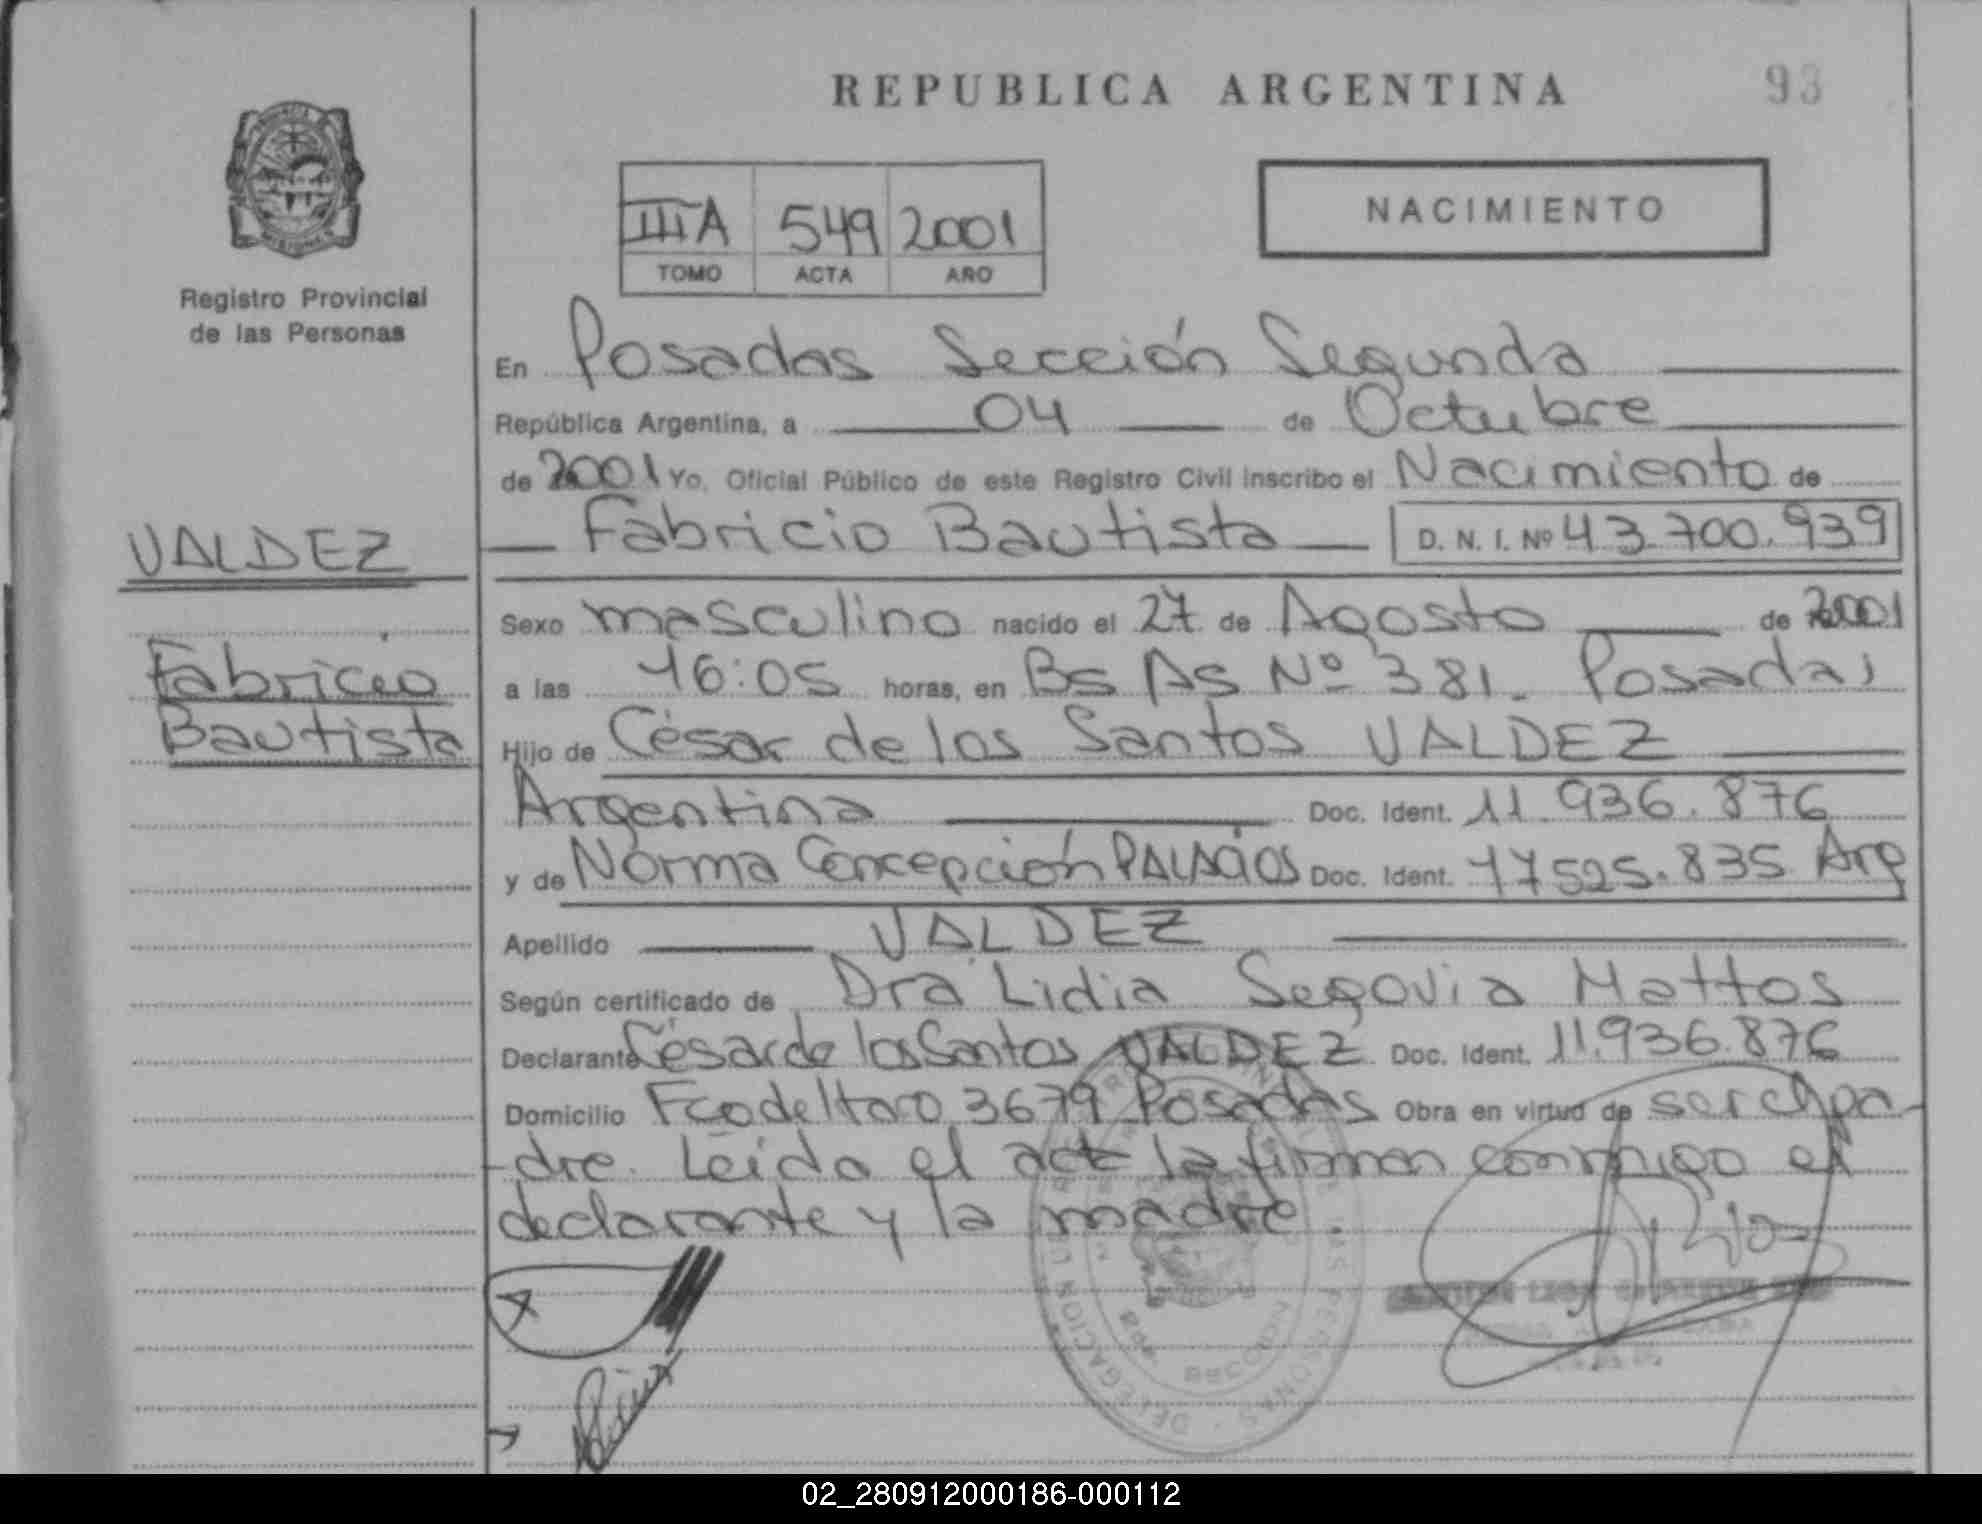 REPUBLICA ARGENTINA
93
MISIONES
Registro Provincial
de las Personas
III A 549 2001
TOMO ACTA AÑO
NACIMIENTO
En Posadas Sección Segunda
República Argentina, a 04 de Octubre
de 2001 Yo, Oficial Público de este Registro Civil inscribo el Nacimiento de
VALDEZ
Fabricio Bautista D. N. I. Nº 43.700.939
Sexo masculino nacido el 27 de Agosto de 2001
Fabricio
a las 16:05 horas, en Bs As Nº 381. Posadas
Bautista
Hijo de César de los Santos VALDEZ
Argentina Doc. Ident. 11.936.876
y de Norma Concepción PALACIOS Doc. Ident. 17525.835 Arg
Apellido VALDEZ
Según certificado de Dra Lidia Segovia Mattos
Declarante César de los Santos VALDEZ Doc. Ident. 11.936.876
Domicilio Fco de Haro 3679 Posadas Obra en virtud de ser el pa-
dre. Leída el acta la firman conmigo el
declarante y la madre.
02_280912000186-000112